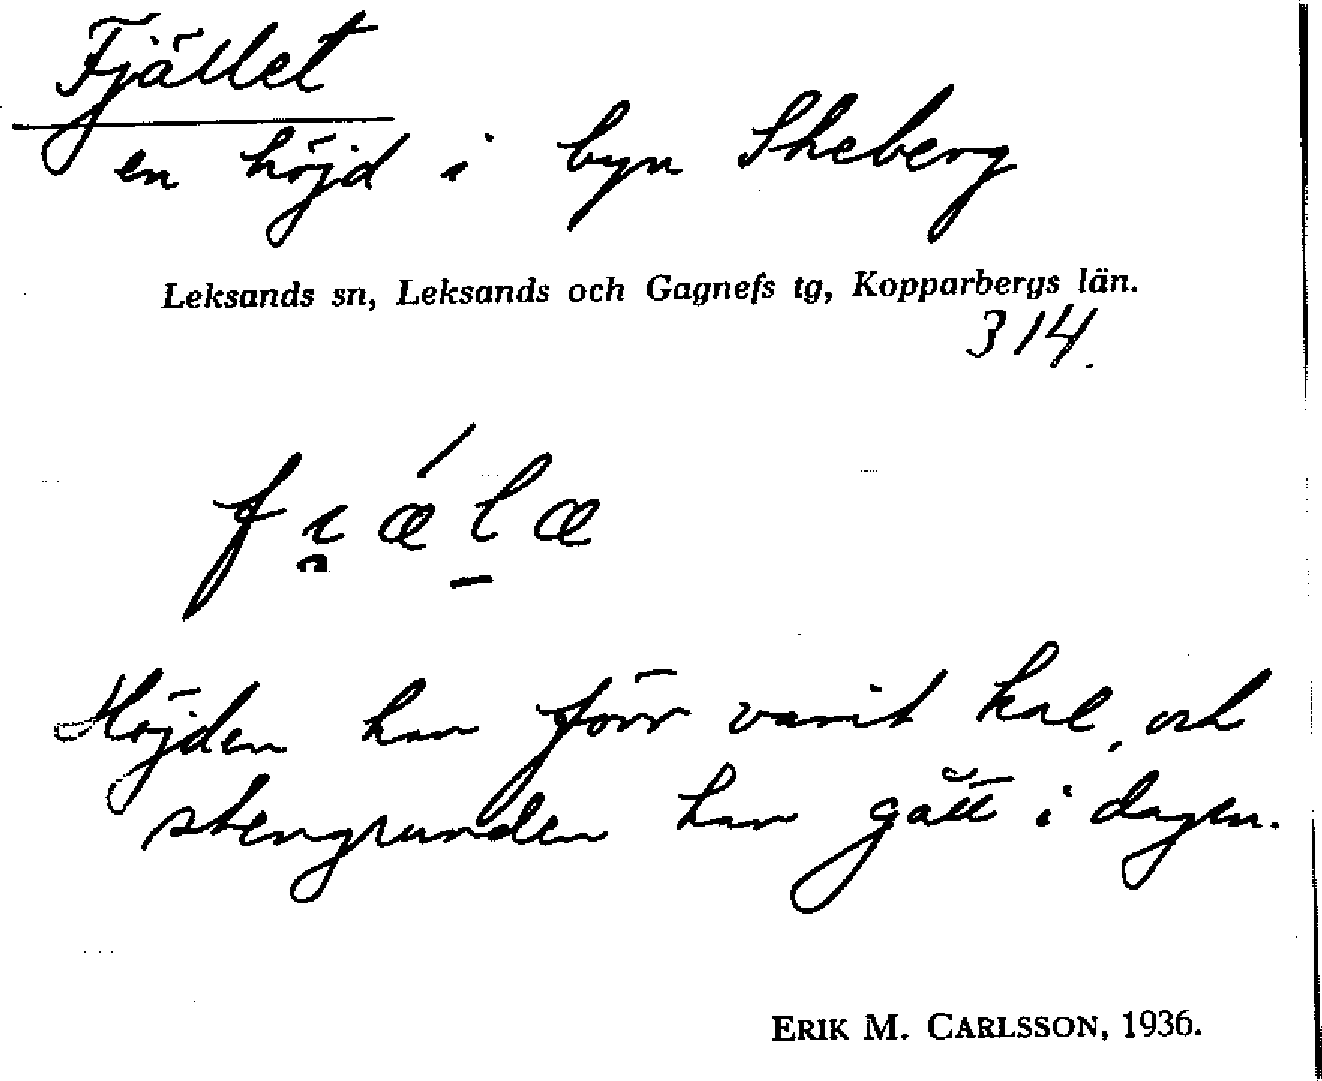 Fjället
en höjd i byn Skeberg
Leksands sn, Leksands och Gagnefs tg, Kopparbergs län.
314.
fi̯ǽl̠æ
Höjden har förr varit kal, och
stengrunden har gått i dagen.
ERIK M. CARLSSON, 1936.